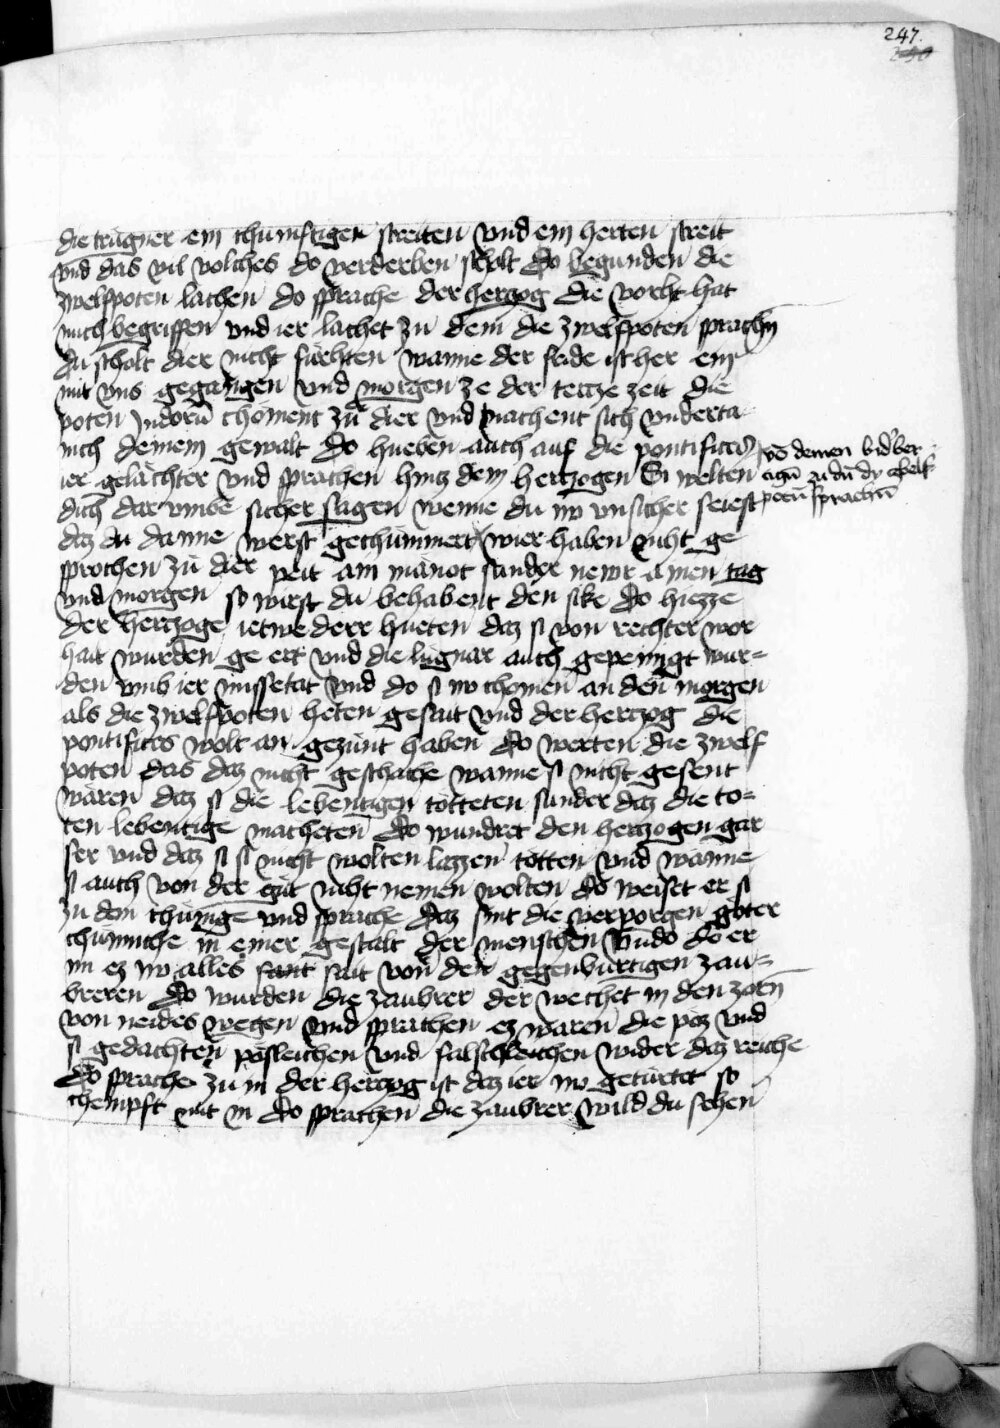 247.
die trugner ein chumftigen streiten vnd ein herten streit
vnd das vil volches do verderben scholt Do begunden die
zwelfpoten lachen do sprache der herzog die vorcht hat
mich begriffen vnd ier lachet zu dem die zwelfpoten sprachn̄
du scholt dier nicht fürchten wanne der fride ist her ein
mit vns gegangen vnd morgen ze der tercze zeit die
poten Jndorū choment zu dier vnd machent sich vnderta
nich deinem gewalt Do hueben auch auf die pontifices
ier gelächter vnd sprachen hincz dem herczogen Si welten
dich dar vmbe sicher sagen wenne du nv vnsicher seiest
daz du danne werst gechummert wier haben nicht ge
sprochen zu dier peit am manot sunder newr a menn tag
vnd morgen so wirst du behabent den sike Do hiezze
der herczoge ietwederr hueten daz si von rechter wor
hait wurden ge ert vnd die lugnar auch gepeinigt wur=
den vmb ier missetat vnd do si nv chomen an den morgen
als die zwelfpoten heten gesait vnd der herczog die
pontifices wolt an gezunt haben Do werten die zwelf
poten das daz nicht geschache wanne si nicht gesent
wären daz si die lebentigen tötteten sunder daz die to=
ten lebentige macheten Do wundret den herczogen gar
ser vnd daz si si nicht wolten lazzen tötten vnd wanne
si auch von der güt nicht nemen wolten do weiset er si
zu dem chünige vnd sprache daz sint die verporgen göter
chumiche in einer gestalt der menschen vnd do do er
im ez nv alles sait von den gegenburtigen zau=
breren Do wurden die zaubrer der wechet in den zorn
von neides wegen vnd sprachen ez wären die pöz vnd
si gedachten pösleichen vnd falschleichen wider daz reiche
Do sprache zu in der herczog ist daz ier nv geturtet so
chempft mit in Do sprachen die zaubrer wild du sehen
sprachn̄